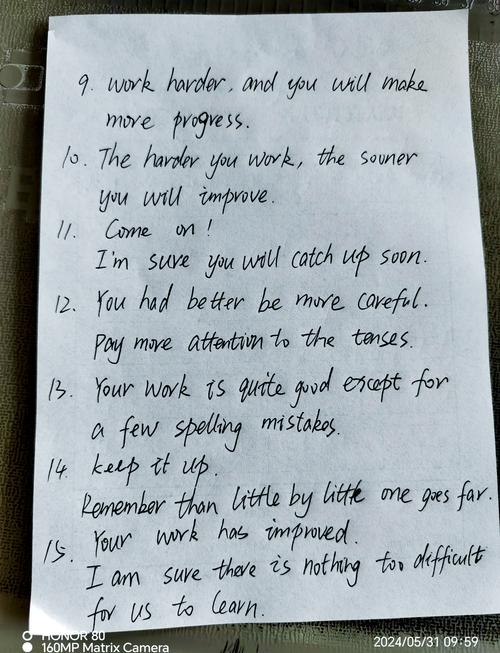 9. work harder, and you will make
more progress.
10. The harder you work, the sooner
you will improve.
11. Come on!
I'm sure you will catch up soon.
12. You had better be more careful.
Pay more attention to the tenses.
13. Your work is quite good except for
a few spelling mistakes.
14. keep it up.
Remember than little by little one goes far.
15. Your work has improved.
I am sure there is nothing too difficult
for us to learn.
HONOR 80
160MP Matrix Camera
2024/05/31 09:59